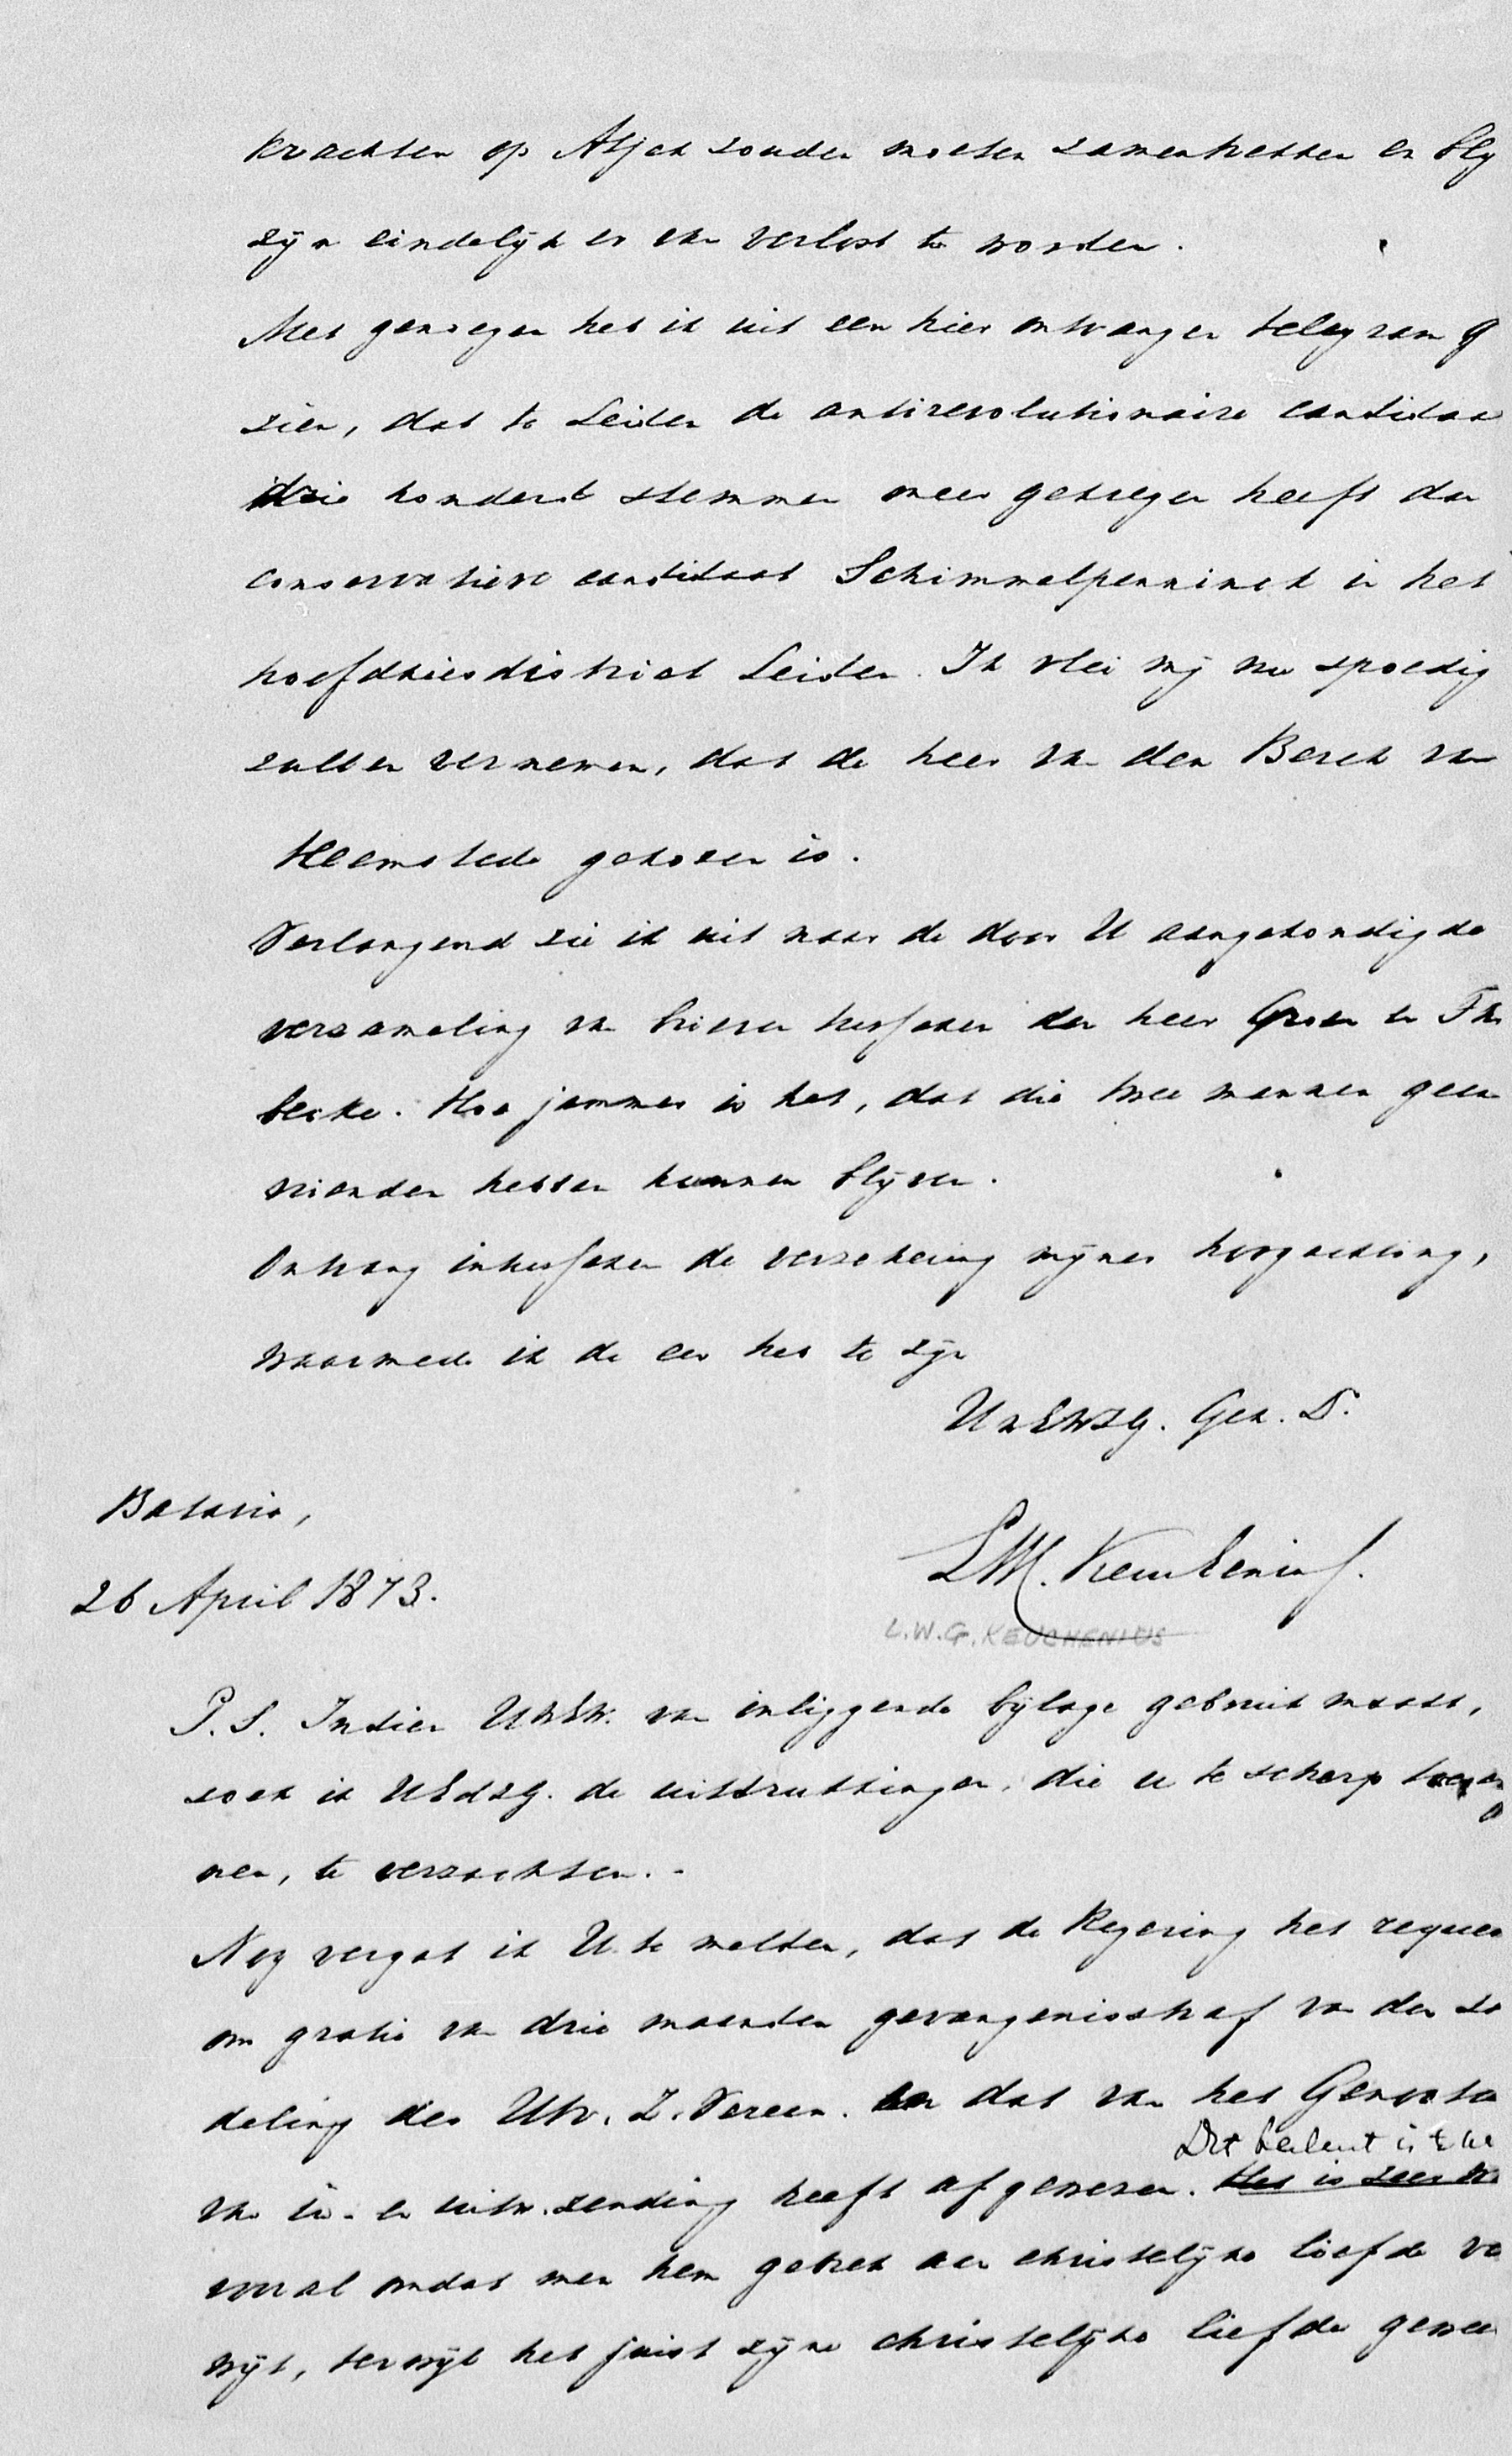 krachten op Atjeh zouden moeten zamentrekken en bly
zijn eindelijk er van verlost te worden.
Met genoegen heb ik uit een hier ontvangen telegram g
zien, dat te Leiden de antirevolutionaire candidaa
drie honderd stemmen meer gekregen heeft dan
conservatieve candidaat Schimmelpenninck in het
hoofdkiesdistrict Leiden. Ik vlei mij nu spoedig
zullen vernemen, dat de heer van den Berch van
Heemstede gekozen is.
Verlangend zie ik uit naar de door U aangekondigde
verzameling van brieven tusschen den heer Groen en Tho
becke. Hoe jammer is het, dat die twee mannen geen
vrienden hebben kunnen blijven.
Ontvang intusschen de verzekering mijner hoogachting,
waarmede ik de eer heb te zijn
UwEWZG. Gen. D.
Batavia,
26 April 1873.
LW. Keuchenius.
L.W.G. KEUCHENIUS
P.S. Indien UwEW. van inliggende bijlage gebruik maakt,
zoek ik UEdZG. de uitdrukkingen, die u te scherp
nen, te verzachten.-
Nog vergat ik U te melden, dat de Regering het reques
om gratie van drie maanden gevangenisstraf van den ze
deling der Utr. Z. Vereen. en dat van het Genoots
van in- en uitw. zending heeft afgewezen. Dit besluit is te
Het is zeer
vooral omdat men hem gebrek aan christelijke liefde ve
wijt, terwijl het juist zijne christelijke liefde gewee